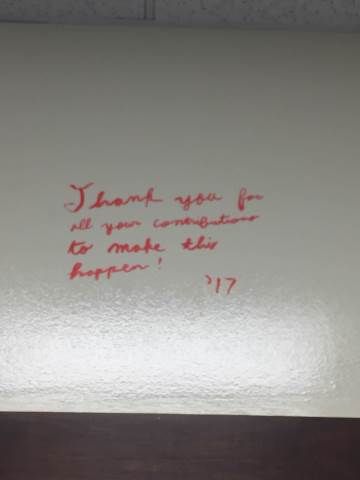 Thank you for
all your contributions
to make this
happen!
'17